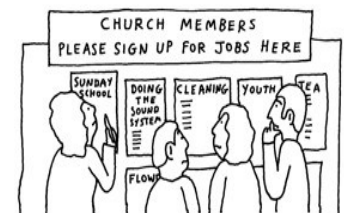 CHURCH MEMBERS
PLEASE SIGN UP FOR JOBS HERE
SUNDAY
SCHOOL
DOING
THE
SOUND
SYSTEM
CLEANING
YOUTH
TEA